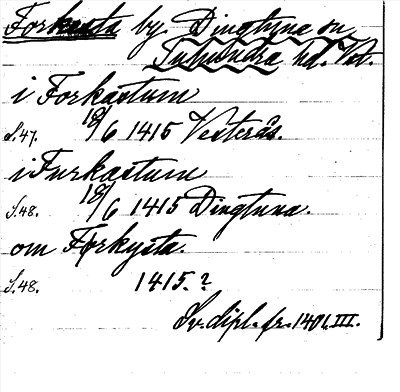 Forkasta by Dingtuna sn
Tuhundra hd. Vst.
i Forkastum
S.47. 18/6 1415 Vesterås.
i Furkastum
S.48. 18/6 1415 Dingtuna.
om Førkysta.
S.48. 1415.?
Sv. dipl. fr. 1401. III.